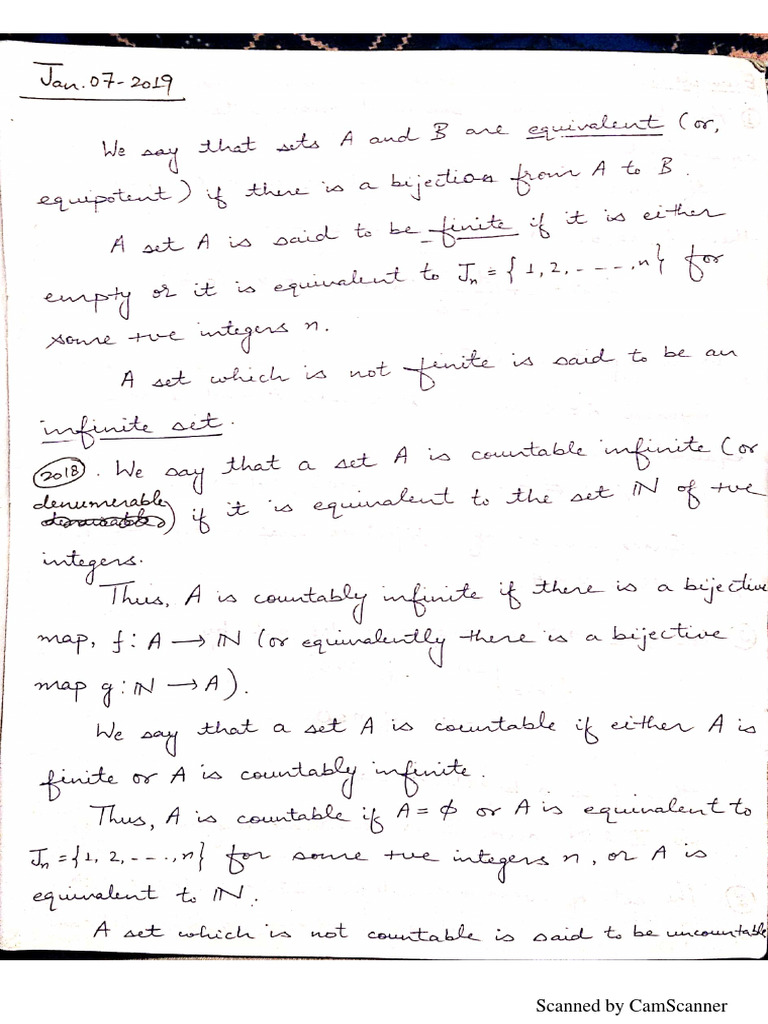 Jan. 07-2019
We say that sets A and B are equivalent (or,
equipotent) if there is a bijection from A to B.
A set A is said to be finite if it is either
empty or it is equivalent to Jₙ = {1, 2, ----, n} for
some +ve integers n.
A set which is not finite is said to be an
infinite set.
(2018). We say that a set A is countable infinite (or
denumerable) if it is equivalent to the set ℕ of +ve
integers.
Thus, A is countably infinite if there is a bijective
map, f: A → ℕ (or equivalently there is a bijective
map g: ℕ → A).
We say that a set A is countable if either A is
finite or A is countably infinite.
Thus, A is countable if A = ϕ or A is equivalent to
Jₙ = {1, 2, ---., n} for some +ve integers n, or A is
equivalent to ℕ.
A set which is not countable is said to be uncountable
Scanned by CamScanner